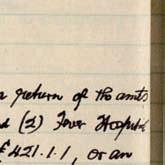 return of the amts
(2) Fever Hospital
£421.1.1, or an